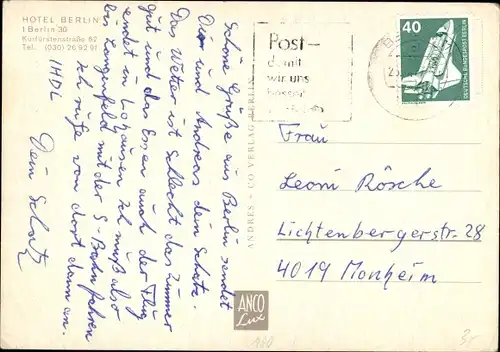 HOTEL BERLIN
1 Berlin 30
Kurfürstenstraße 62
Tel. (030) 26 92 91
Schöne Grüße aus Berlin sendet
Dir und Andreas dein Schatz.
Das Wetter ist schlecht das Zimmer
gut und das Essen auch der Flug
endet in Lohausen ich muß also
bis Langenfeld mit der S-Bahn fahren
ich rufe von dort dann an.
IHDL
Dein Schatz
ANDRES + CO VERLAG BERLIN
ANCO
Lux
Post-
damit
wir uns
besser
40
DEUTSCHE BUNDESPOST BERLIN
Frau
Leoni Rösche
Lichtenbergerstr. 28
4019 Monheim